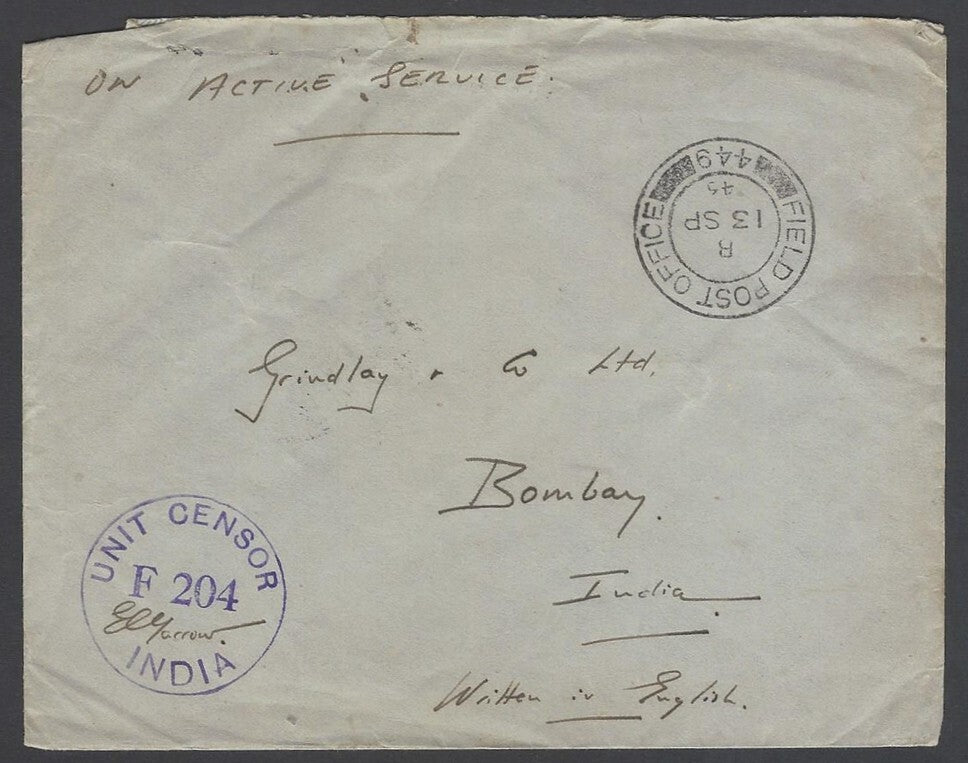 ON ACTIVE SERVICE.
FIELD POST OFFICE
R
13 SP
45
449
Grindlay & Co Ltd.
Bombay.
India.
Written in English.
UNIT CENSOR
F 204
INDIA